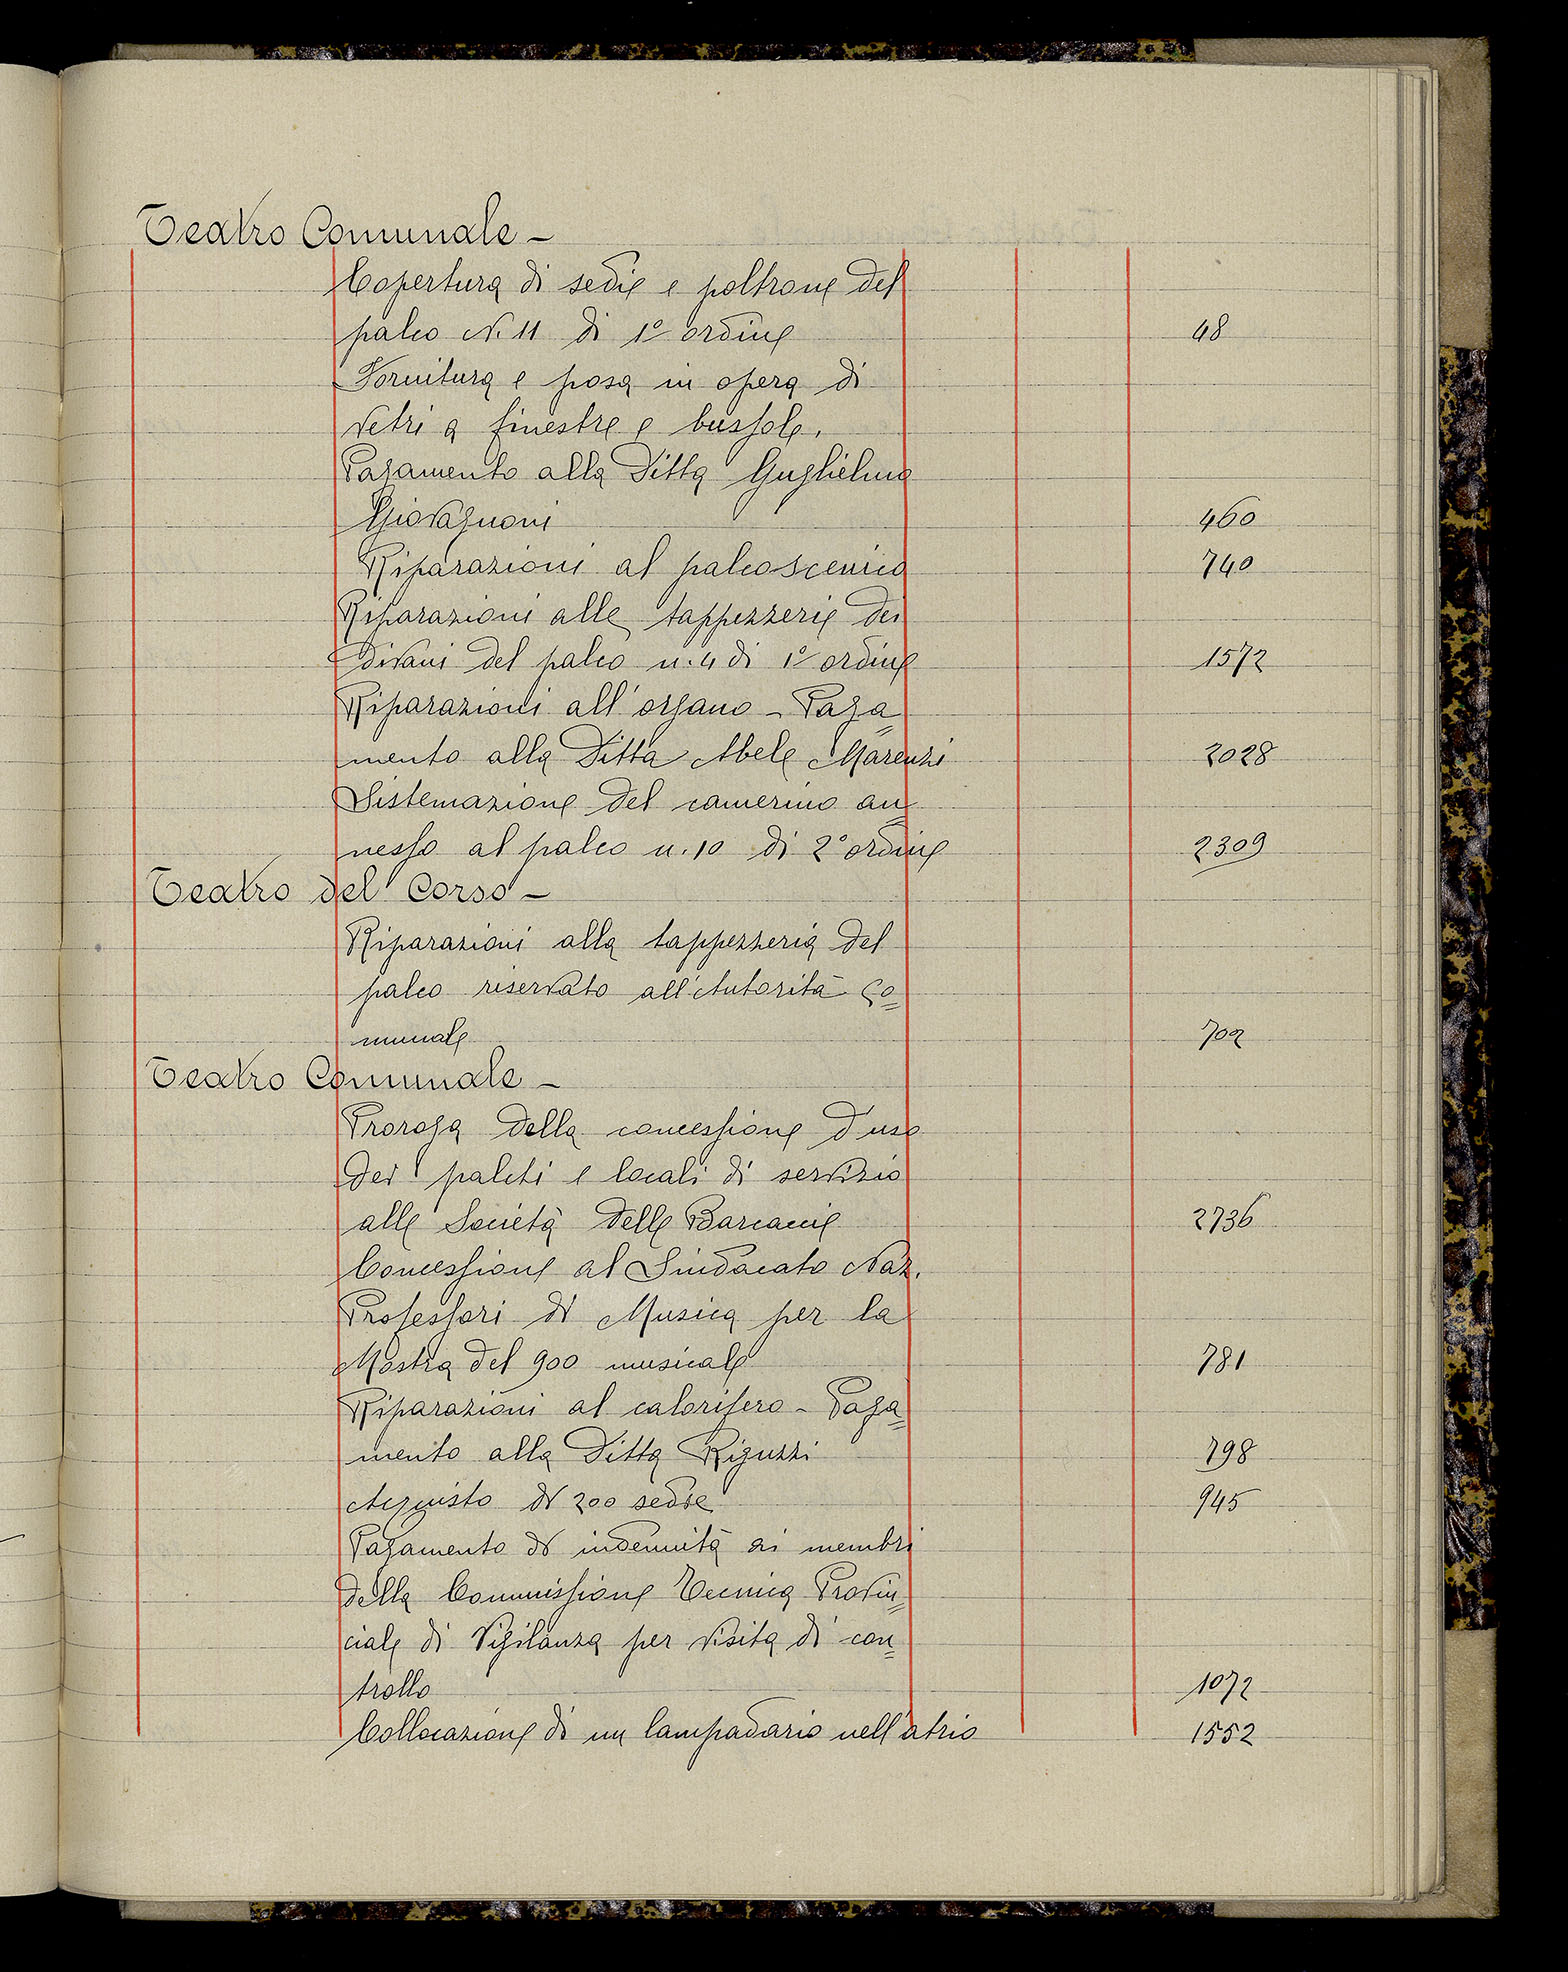 Teatro Comunale -
Copertura di sedie e poltrone del
palco N. 11 di 1° ordine 48
Fornitura e posa in opera di
vetri a finestre e bussole.
Pagamento alla Ditta Guglielmo
Giovagnoni 460
Riparazioni al palcoscenico 740
Riparazioni alle tappezzerie dei
divani del palco n. 4 di 1° ordine 1572
Riparazioni all'organo - Paga=
mento alla Ditta Abele Marenzi 2028
Sistemazione del camerino an=
nesso al palco n. 10 di 2° ordine 2309
Teatro del Corso -
Riparazioni alla tappezzeria del
palco riservato all'Autorità Co=
munale 702
Teatro Comunale -
Proroga della concessione d'uso
dei palchi e locali di servizio
alle Società delle Barcacie 2736
Concessione al Sindacato Naz.
Professori di Musica per la
Mostra del 900 musicale 781
Riparazioni al calorifero - Paga=
mento alla Ditta Riguzzi 798
Acquisto di 200 sedie 945
Pagamento di indennità ai membri
della Commissione Tecnica Provin=
ciale di Vigilanza per visita di con=
trollo 1072
Collocazione di un lampadario nell'atrio 1552